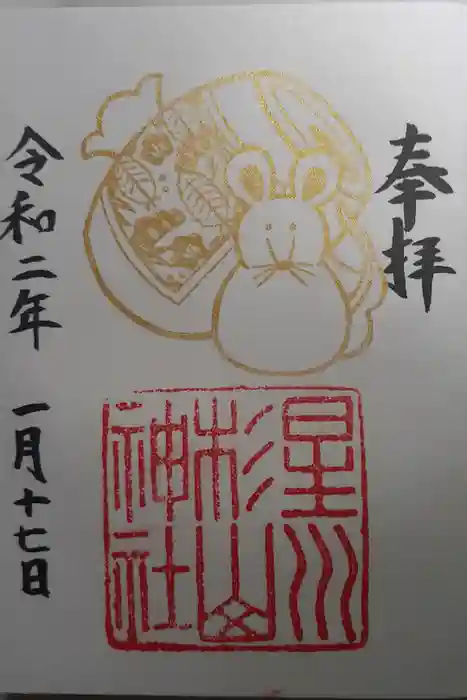 奉拝
星川
杉山
神社
令和二年 一月十七日